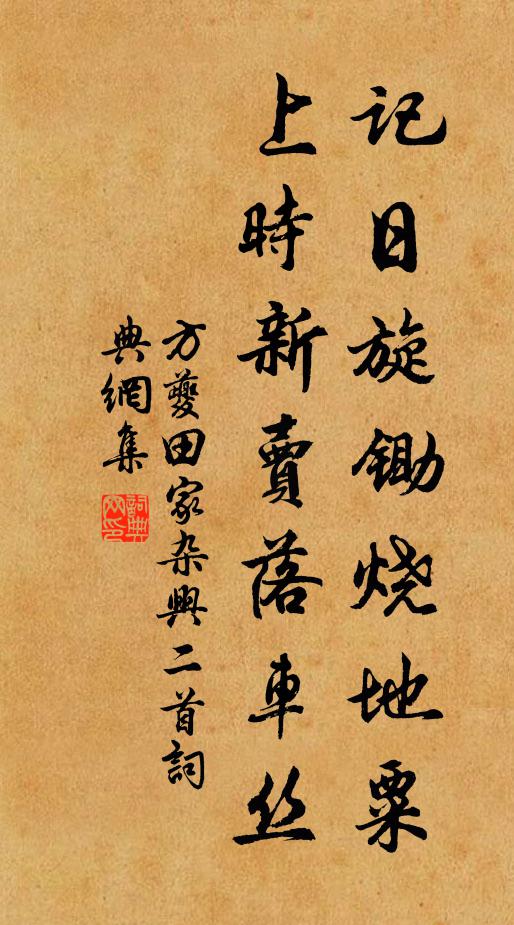 记日旋锄烧地粟
上時新賣落車丝
方夔田家杂興二首詞
典網集
詞典網印